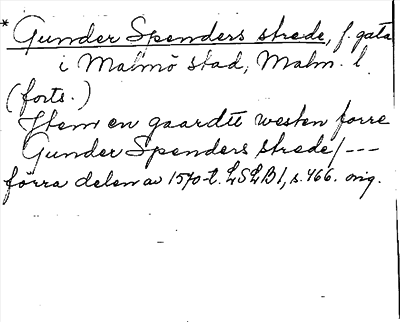 * Gunder Spenders strede, f. gata
i Malmö stad, Malm. l.
(forts.)
Item en gaardtt westen forre
Gunder Spenders strede/ ---
förra delen av 1570-t. LSLB1, s. 466. orig.